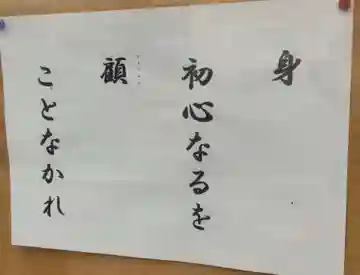 身
初心なるを
顧
ことなかれ